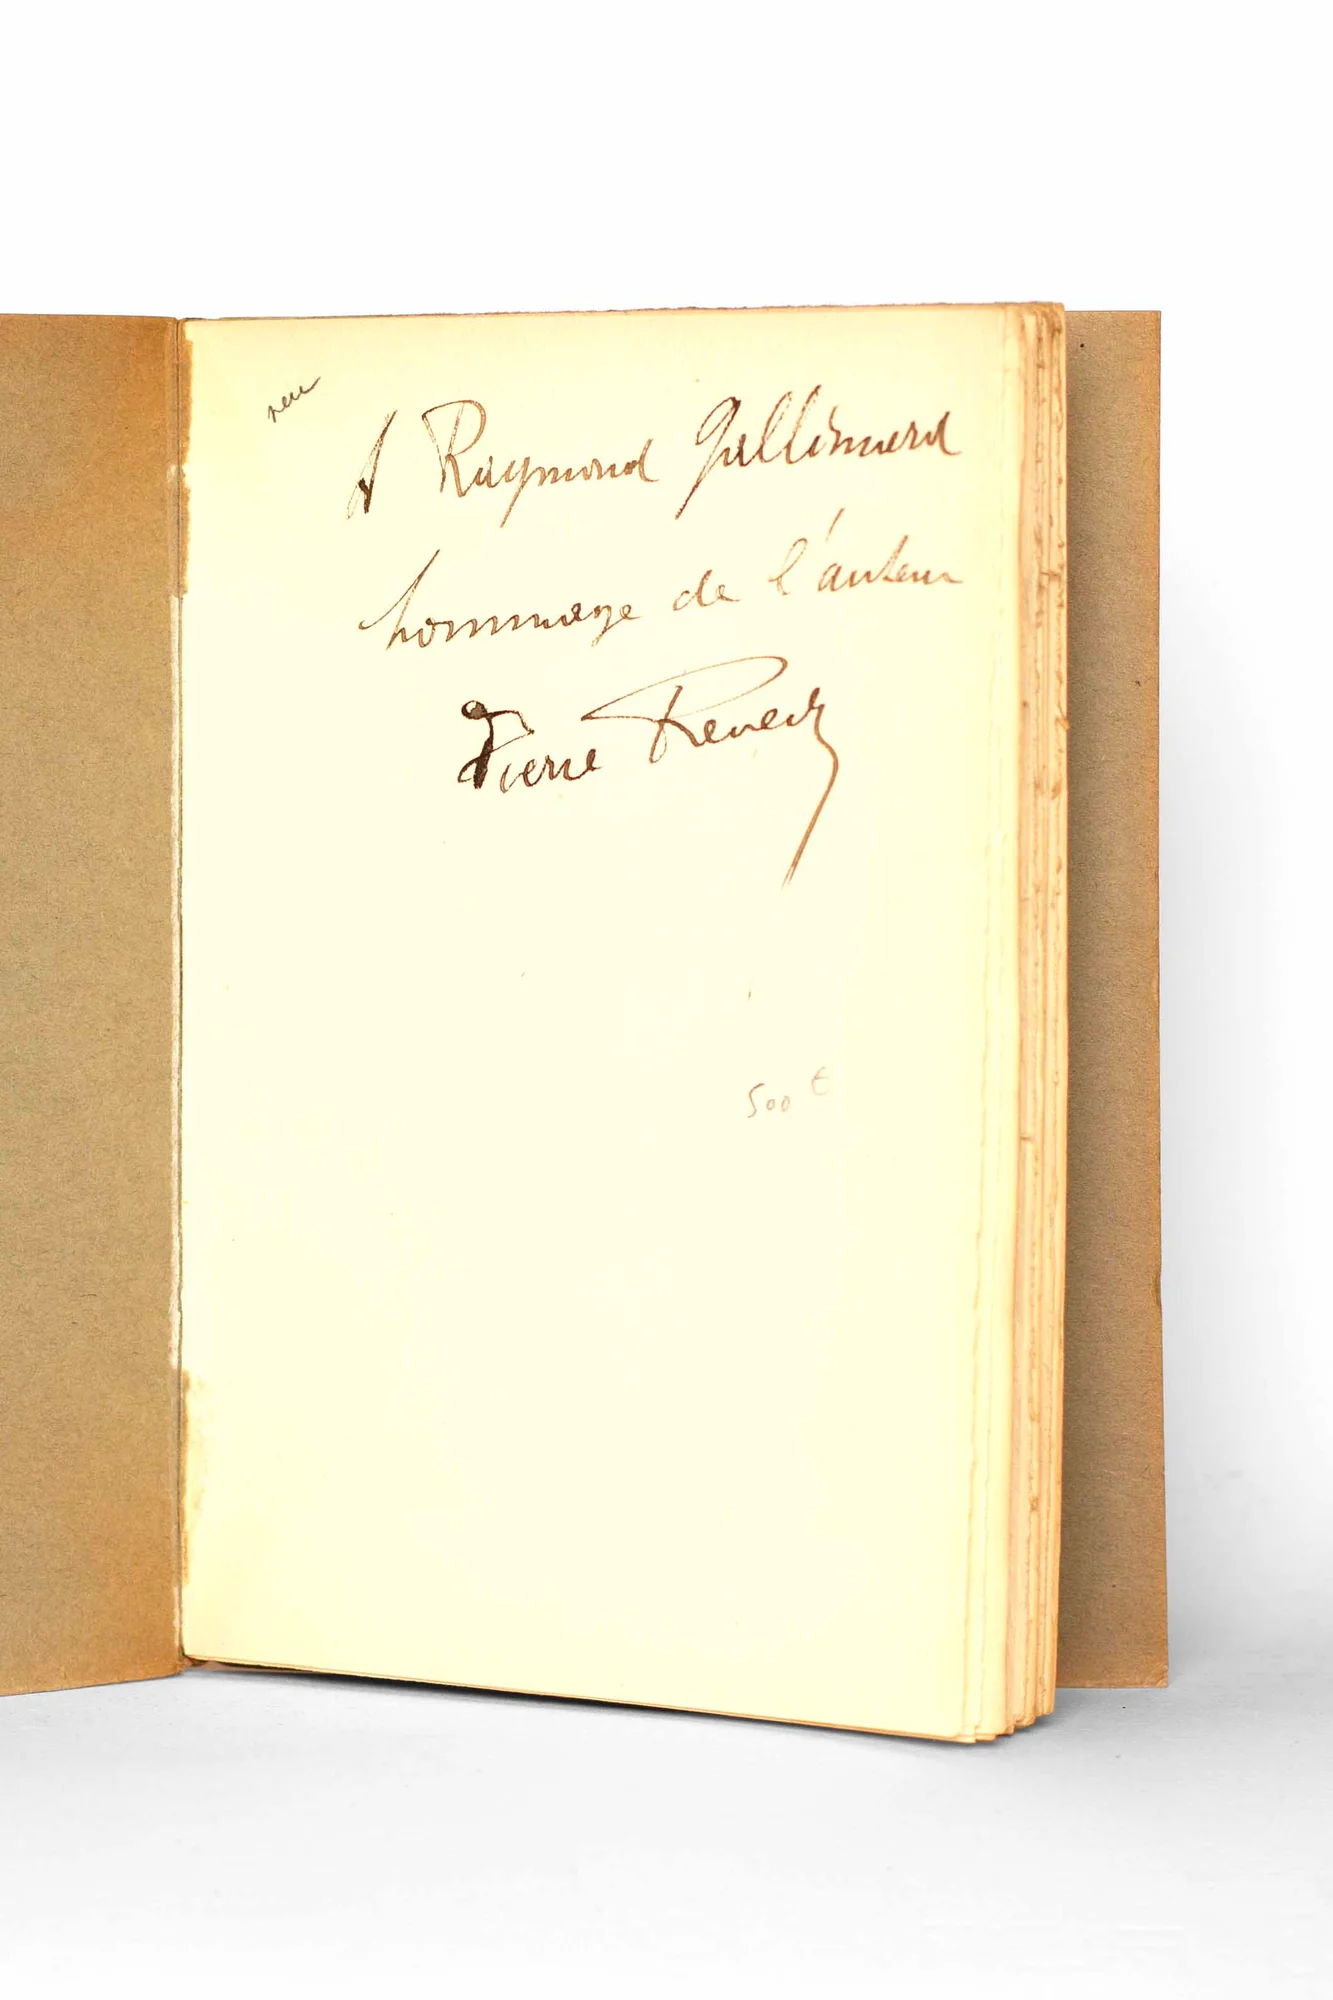 A Raymond Gallimard
hommage de l'auteur
Pierre Reverdy
500 €